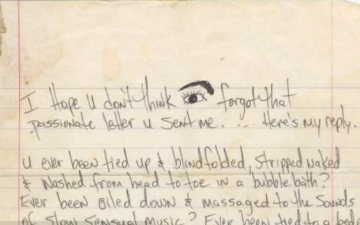 I Hope u don't think forgot that
passionate letter u sent me.... Here's my reply.
u ever been tied up & blindfolded, stripped naked
& washed from head to toe in a bubble bath?
Ever been oiled down & massaged to the sounds
of slow sensual music? Ever been tied to a bed